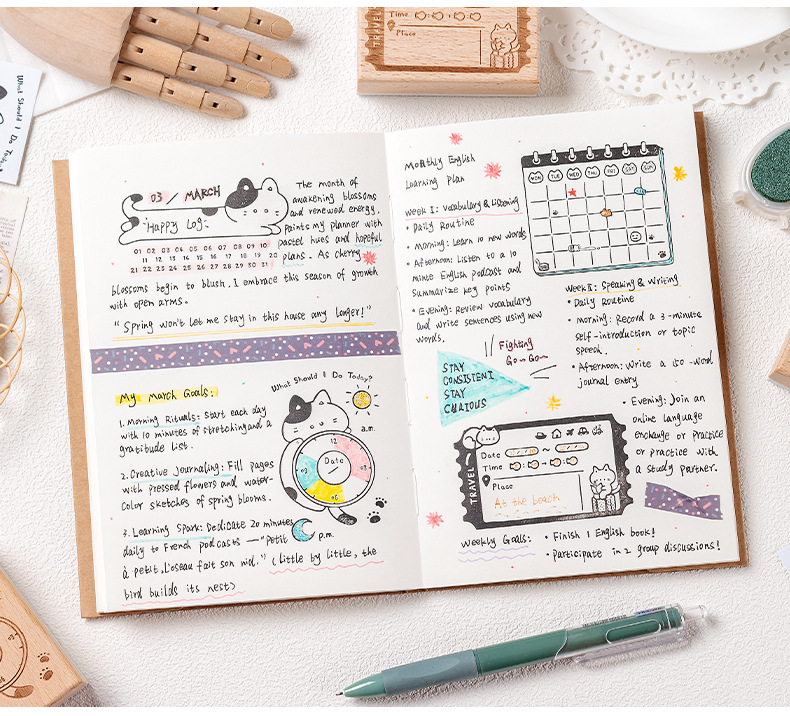 03 / MARCH
Happy Log:
01 02 03 04 05 06 07 08 09 10
11 12 13 14 15 16 17 18 19 20
21 22 23 24 25 26 27 28 29 30 31
The month of
awakening blossoms
and renewed energy,
paints my planner with
pastel hues and hopeful
plans. As cherry
blossoms begin to blush, I embrace this season of growth
with open arms.
"Spring won't let me stay in this house any longer!"
My March Goals:
What Should I Do Today?
1. Morning Rituals: Start each day
with 10 minutes of stretching and a
gratitude list.
2. Creative Journaling: Fill pages
with pressed flowers and water-
color sketches of spring blooms.
3. Learning Spark: Dedicate 20 minutes
daily to French podcasts — "Petit
à petit, l'oseau fait son nid." (little by little, the
bird builds its nest)
a.m.
12
Date
03
06
09
p.m.
Monthly English
Learning Plan
Week I: Vocabulary & Listening
• Daily Routine
• Morning: Learn 10 new words
• Afternoon: Listen to a 10
minte English podcast and
Summarize key points
• Evening: Review vocabulary
and write sentences using new
words.
MON TUE WED THU FRI SAT SUN
Fighting
Go~Go~
STAY
CONSISTENT
STAY
CURIOUS
Week II: Speaking & Writing
• Daily Routine
• Morning: Record a 3-minute
self-introduction or topic
speech.
• Afternoon: Write a 150-word
journal entry
• Evening: Join an
online language
enchauge or practice
or practice with
a study partner.
TRAVEL
Date
Time
Place
At the beach
Weekly Goals:
• Finish 1 English book!
• Participate in 2 group discussions!
TRAVEL
Time
Place
What Should I Do Today?